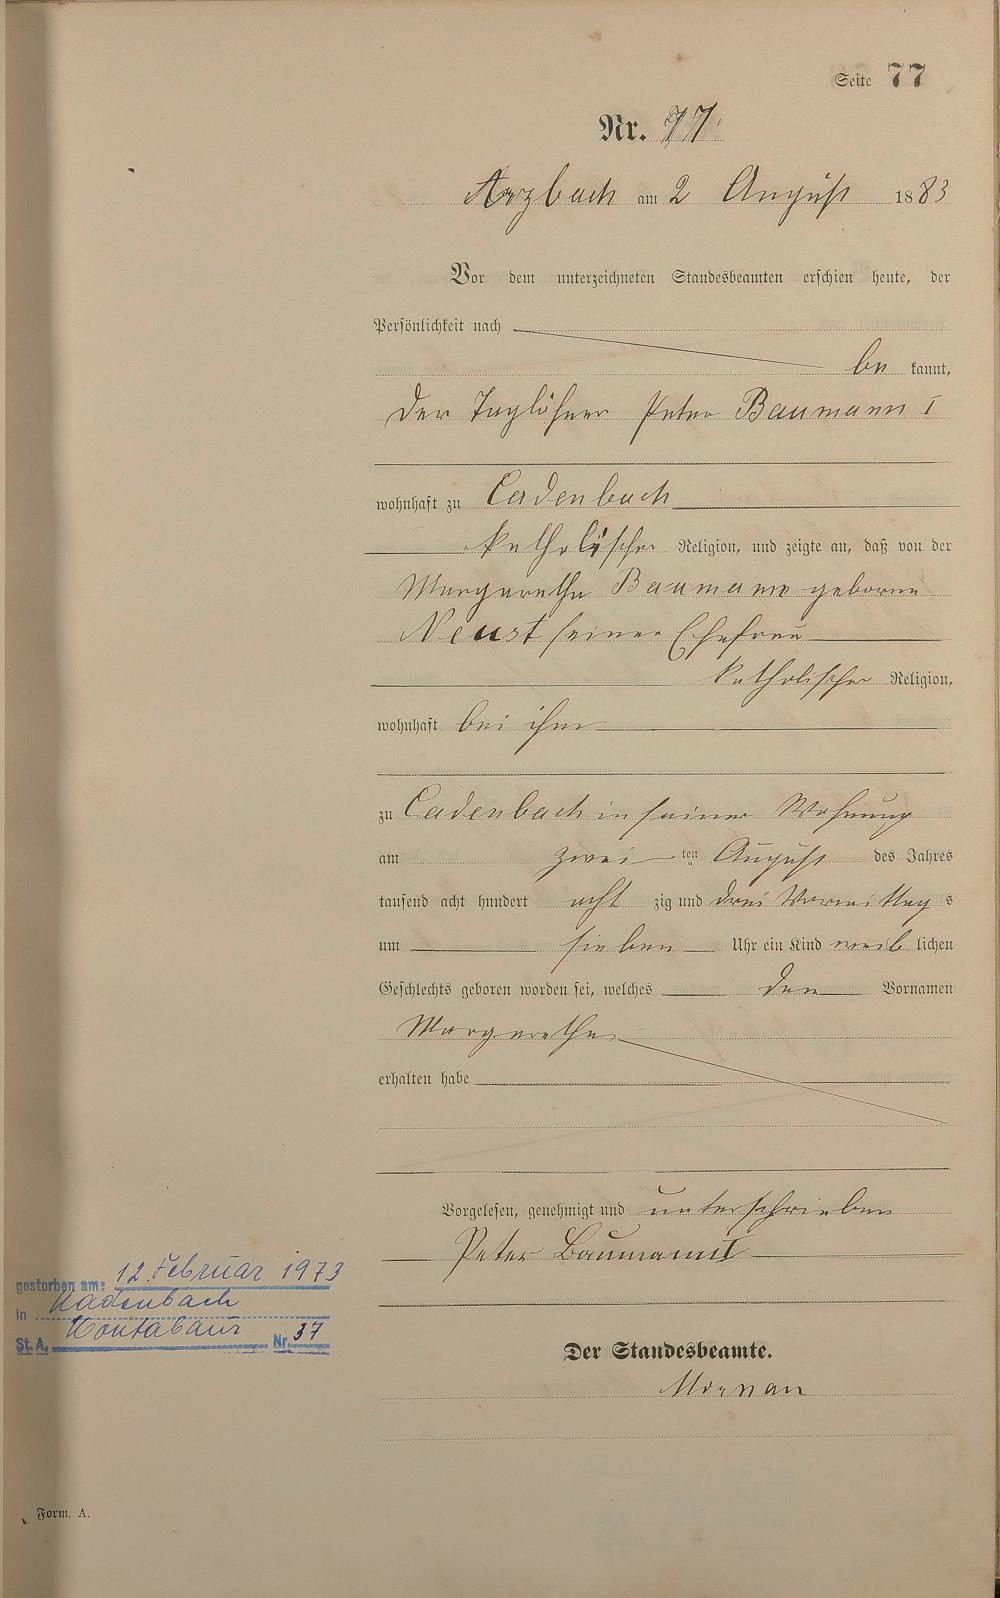 Seite 77
Nr. 77.
Arzbach am 2 August 1883
Vor dem unterzeichneten Standesbeamten erschien heute, der
Persönlichkeit nach
be kannt,
der Taglöhner Peter Baumann I
wohnhaft zu Cadenbach
katholischer Religion, und zeigte an, daß von der
Margaretha Baumann geborne
Neust seiner Ehefrau
katholischer Religion,
wohnhaft bei ihm
zu Cadenbach in seiner Wohnung
am zwei ten August des Jahres
tausend acht hundert acht zig und drei Vormittag s
um sieben Uhr ein Kind weib lichen
Geschlechts geboren worden sei, welches den Vornamen
Margaretha
erhalten habe
Vorgelesen, genehmigt und unterschrieben
Peter Baumann I
gestorben am: 12. Februar 1973
in Kadenbach
St. A. Montabaur Nr. 37
Der Standesbeamte.
Form. A.